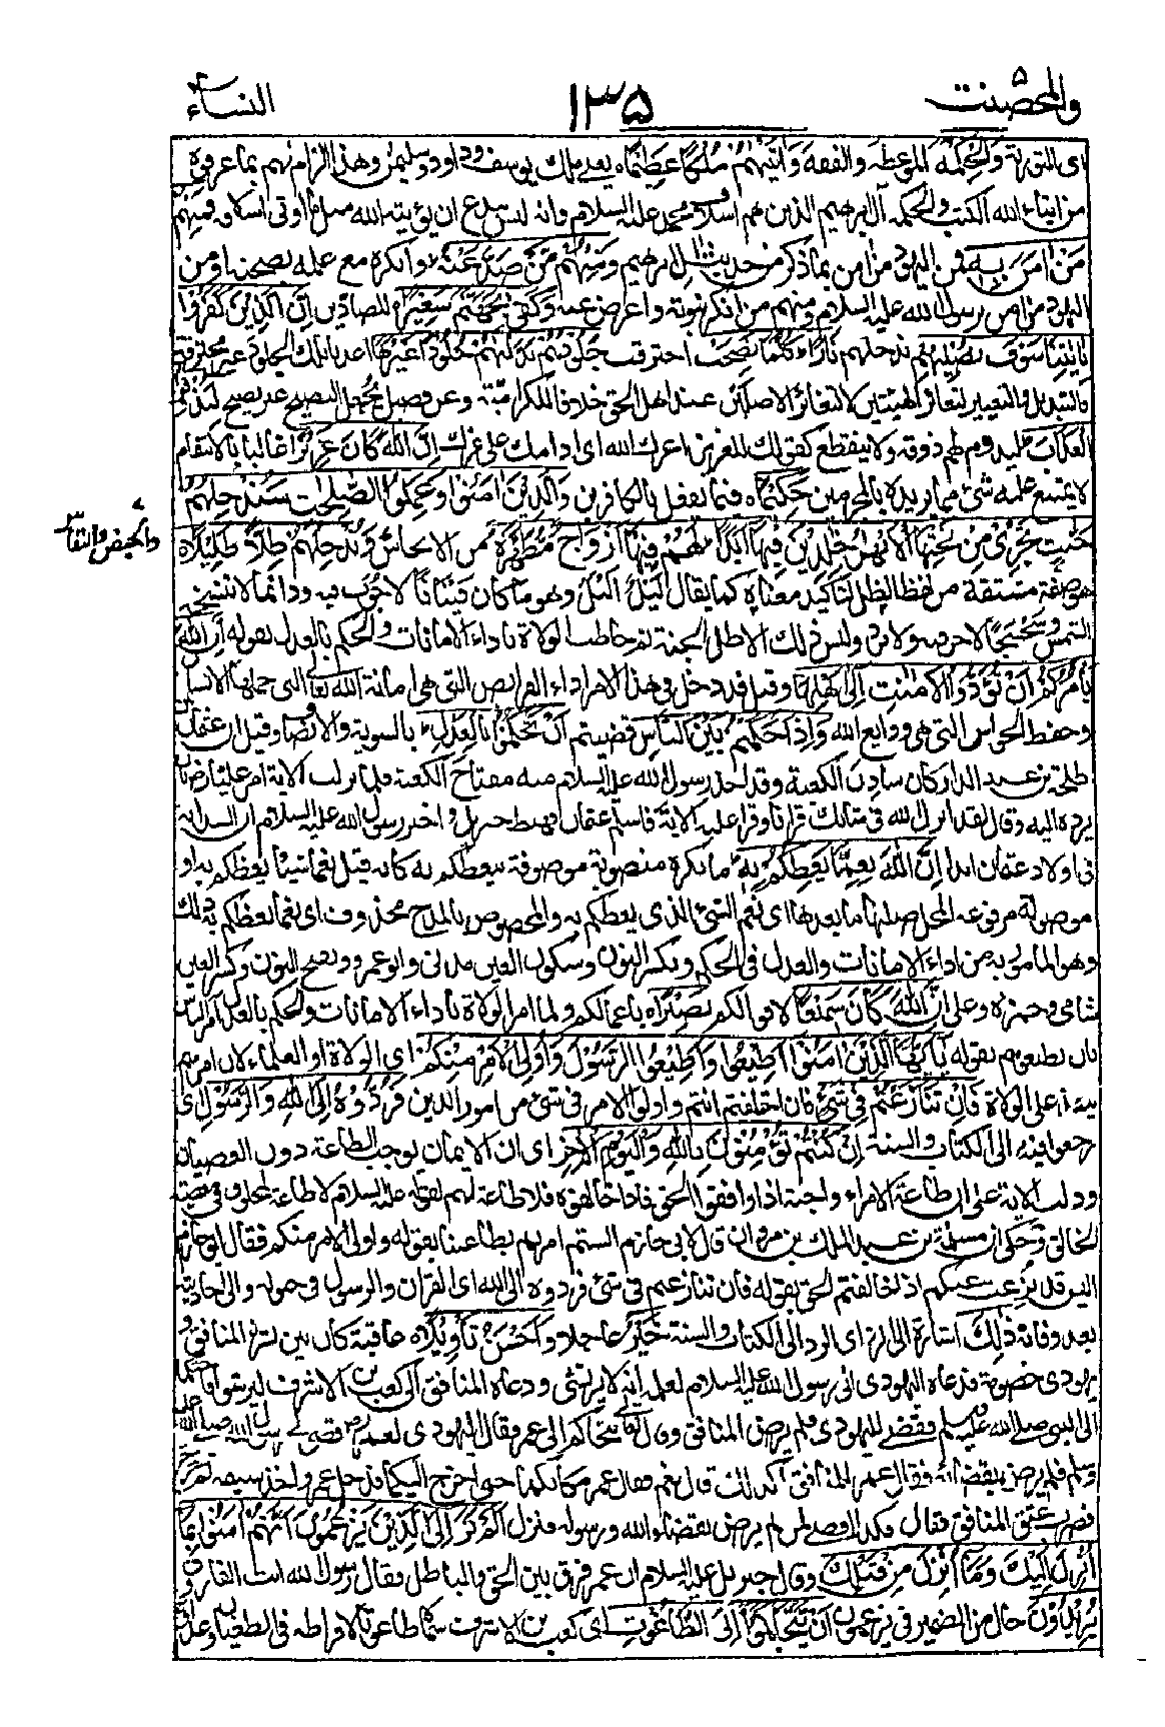 والمحصنت ۵
۱۳۵
النساء ۴
ای التورىة وَالْحِكْمَةَ الموعظة والفقه وَاٰتَيْنٰهُمْ مُّلْكًا عَظِيْمًا ه يعنے ملك يوسف وداود وسليمٰن وهذا الزام لهم بما عرفوه
من ايتاء الله الكتٰب والحكمة آل ابرهيم الذين هم اسلاف محمد عليه السلام وانه ليس ببدع ان يؤتيه الله مثل ما اوتى اسلافه فَمِنْهُمْ
مَّنْ اٰمَنَ بِهٖ فمن اليهود من امن بما ذكر من حديث اٰل ابرهيم وَمِنْهُمْ مَّنْ صَدَّ عَنْهُ وانكره مع علمه بصحته او من
اليهود من امن برسول الله عليه السلام ومنهم من انكر نبوته واعرض عنه وَكَفٰى بِجَهَنَّمَ سَعِيْرًا للصادين اِنَّ الَّذِيْنَ كَفَرُوْا
بِاٰيٰتِنَا سَوْفَ نُصْلِيْهِمْ ندخلهم نَارًا كُلَّمَا نَضِجَتْ احترقت جُلُوْدُهُمْ بَدَّلْنٰهُمْ جُلُوْدًا غَيْرَهَا اعدنا تلك الجلود غير محترقة
فالتبديل والتغيير لتغائر الهيئتين لا لتغائر الاصلين عند اهل الحق خلافا للكرامية وعن فضيل يجعل النضيج غير نضيج لِيَذُوْقُوا
الْعَذَابَ ليدوم لهم ذوقه ولا ينقطع كقولك للعزيز اعزك الله اى ادامك على عزك اِنَّ اللّٰهَ كَانَ عَزِيْزًا غالبا بالانتقام
لا يمتنع عليه شئ مما يريده بالمجرمين حَكِيْمًا ه فيما يفعل بالكافرين وَالَّذِيْنَ اٰمَنُوْا وَعَمِلُوا الصّٰلِحٰتِ سَنُدْخِلُهُمْ
جَنّٰتٍ تَجْرِىْ مِنْ تَحْتِهَا الْاَنْهٰرُ خٰلِدِيْنَ فِيْهَا اَبَدًا لَهُمْ فِيْهَا اَزْوَاجٌ مُّطَهَّرَةٌ من الانجاس وَّنُدْخِلُهُمْ ظِلًّا ظَلِيْلًا ه
والحيض والنفاس
هو صفة مشتقة من لفظ الظل لتاكيد معناه كما يقال ليل اليل وهو ما كان فينانا لا جوب فيه ودائما لا تنسخه
الشمس وسجسجا لا حر فيه ولا برد وليس ذلك الا ظل الجنة ثم خاطب الولاة باداء الامانات والحكم بالعدل بقوله اِنَّ اللّٰهَ
يَاْمُرُكُمْ اَنْ تُؤَدُّوا الْاَمٰنٰتِ اِلٰى اَهْلِهَا وقيل قد دخل فى هذا الامر اداء الفرائض التى هى امانة الله تعالٰى التى حملها الانسان
وحفظ الحواس التى هى ودايع الله وَاِذَا حَكَمْتُمْ بَيْنَ النَّاسِ قضيتم اَنْ تَحْكُمُوْا بِالْعَدْلِ بالسوية والانصاف وقيل ان عثمان بن
طلحة بن عبد الدار كان سادن الكعبة وقد اخذ رسول الله عليه السلام منه مفتاح الكعبة فلما نزلت الاية امر عليا رض بان
يرده اليه وقال لقد انزل الله فى شانك قرانا وقرا عليه الاية فاسلم عثمان فهبط جبريل واخبر رسول الله عليه السلام ان السدانة
فى اولاد عثمان ابدا اِنَّ اللّٰهَ نِعِمَّا يَعِظُكُمْ بِهٖ ما نكرة منصوبة موصوفة بيعظكم به كانه قيل نعم شيئا يعظكم به او
موصولة مرفوعة المحل صلتها ما بعدها اى نعم الشئ الذى يعظكم به والمخصوص بالمدح محذوف اى نعما يعظكم به ذلك
وهو المامور به من اداء الامانات والعدل فى الحكم وبكسر النون وسكون العين مدنى وابو عمرو وبفتح النون وكسر العين
شامى وحمزة وعلى اِنَّ اللّٰهَ كَانَ سَمِيْعًا لاقوالكم بَصِيْرًا ه باعمالكم ولما امر الولاة باداء الامانات والحكم بالعدل امر الناس
بان يطيعوهم بقوله يٰاَيُّهَا الَّذِيْنَ اٰمَنُوْا اَطِيْعُوا اللّٰهَ وَاَطِيْعُوا الرَّسُوْلَ وَاُولِى الْاَمْرِ مِنْكُمْ اى الولاة او العلماء لان امرهم
ينفذ على الولاة فَاِنْ تَنَازَعْتُمْ فِىْ شَىْءٍ فان اختلفتم انتم واولو الامر فى شئ من امور الدين فَرُدُّوْهُ اِلَى اللّٰهِ وَالرَّسُوْلِ اى
ارجعوا فيه الى الكتاب والسنة اِنْ كُنْتُمْ تُؤْمِنُوْنَ بِاللّٰهِ وَالْيَوْمِ الْاٰخِرِ اى ان الايمان يوجب الطاعة دون العصيان
ودلت الاية على ان طاعة الامراء واجبة اذا وافقوا الحق فاذا خالفوه فلا طاعة لهم لقوله عليه السلام لا طاعة لمخلوق فى معصية
الخالق وحكى ان مسلمة بن عبد الملك بن مروان قال لابى حازم الستم امرتم بطاعتنا بقوله واولى الامر منكم فقال ابو حازم
اليس قد نزعت عنكم اذ خالفتم الحق بقوله فان تنازعتم فى شئ فردوه الى الله اى القران والرسول فى حيوته والى احاديثه
بعد وفاته ذٰلِكَ اشارة الى الرد اى الرد الى الكتاب والسنة خَيْرٌ عاجلا وَّاَحْسَنُ تَاْوِيْلًا ه عاقبة كان بين بشر المنافق و
يهودى خصومة فدعاه اليهودى الى رسول الله عليه السلام لعلمه انه لا يرتشى ودعاه المنافق الى كعب بن الاشرف ليرشوه فاحتكما
الى النبى صلے الله عليه وسلم فقضے لليهودى فلم يرض المنافق وقال تعال نتحاكم الى عمر فقال اليهودى لعمر رض قضى لى رسول الله صلے الله عليه
وسلم فلم يرض بقضائه فقال عمر للمنافق أكذلك قال نعم فقال عمر مكانكما حتى اخرج اليكما فدخل عمر واخذ سيفه ثم خرج
فضرب عنق المنافق فقال هكذا اقضى لمن لم يرض بقضاء الله ورسوله فنزل اَلَمْ تَرَ اِلَى الَّذِيْنَ يَزْعُمُوْنَ اَنَّهُمْ اٰمَنُوْا بِمَا
اُنْزِلَ اِلَيْكَ وَمَا اُنْزِلَ مِنْ قَبْلِكَ وقال جبريل عليه السلام ان عمر فرق بين الحق والباطل فقال رسول الله انت الفاروق
يُرِيْدُوْنَ حال من الضمير فى يزعمون اَنْ يَّتَحَاكَمُوْا اِلَى الطَّاغُوْتِ اى كعب بن الاشرف سماه طاغوتا لافراطه فى الطغيان وعداوة